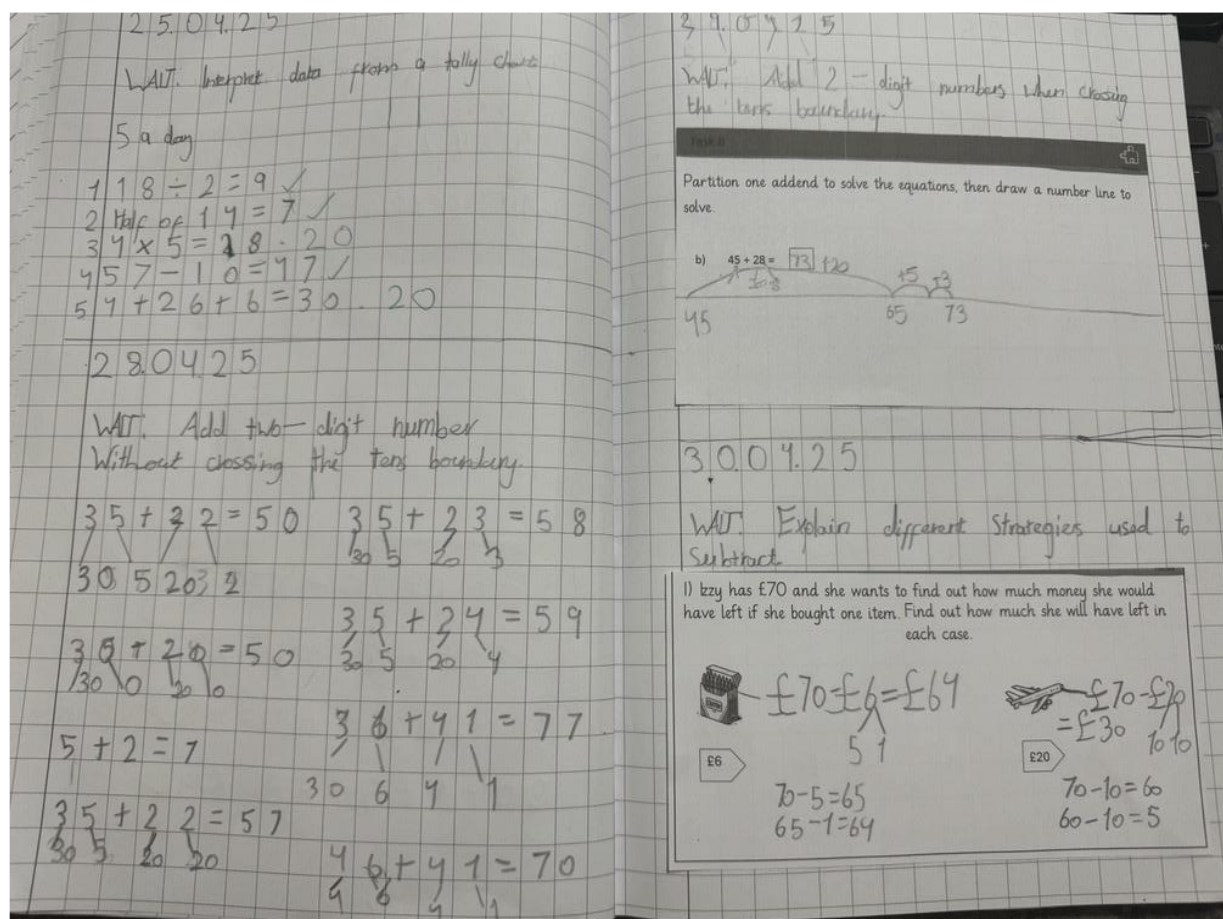 25.04.25
WALT: Interpret data from a tally chart
5 a day
1 18 ÷ 2 = 9 ✓
2 Half of 14 = 7 ✓
3 4 × 5 = 18 . 20
4 57 - 10 = 47 ✓
5 4 + 26 + 6 = 30 . 20
28.04.25
WALT: Add two-digit number
Without crossing the tens boundary.
35 + 32 = 50
30 5 20 2
30 + 20 = 50
30 0 20 0
5 + 2 = 7
35 + 22 = 57
30 5 20 20
35 + 23 = 58
30 5 20 3
35 + 24 = 59
30 5 20 4
36 + 41 = 77
30 6 4 1
46 + 41 = 70
4 6 4 1
29.04.25
WALT: Add 2-digit numbers when crossing
the tens boundary.
Partition one addend to solve the equations, then draw a number line to
solve.
b) 45 + 28 = 73 +20
+5 +3
45 65 73
30.04.25
WALT: Explain different Strategies used to
Subtract
1) Izzy has £70 and she wants to find out how much money she would
have left if she bought one item. Find out how much she will have left in
each case.
£70-£6=£64
5 1
£6
70-5=65
65-1=64
£70-£20
=£30
10 10
£20
70-10=60
60-10=5